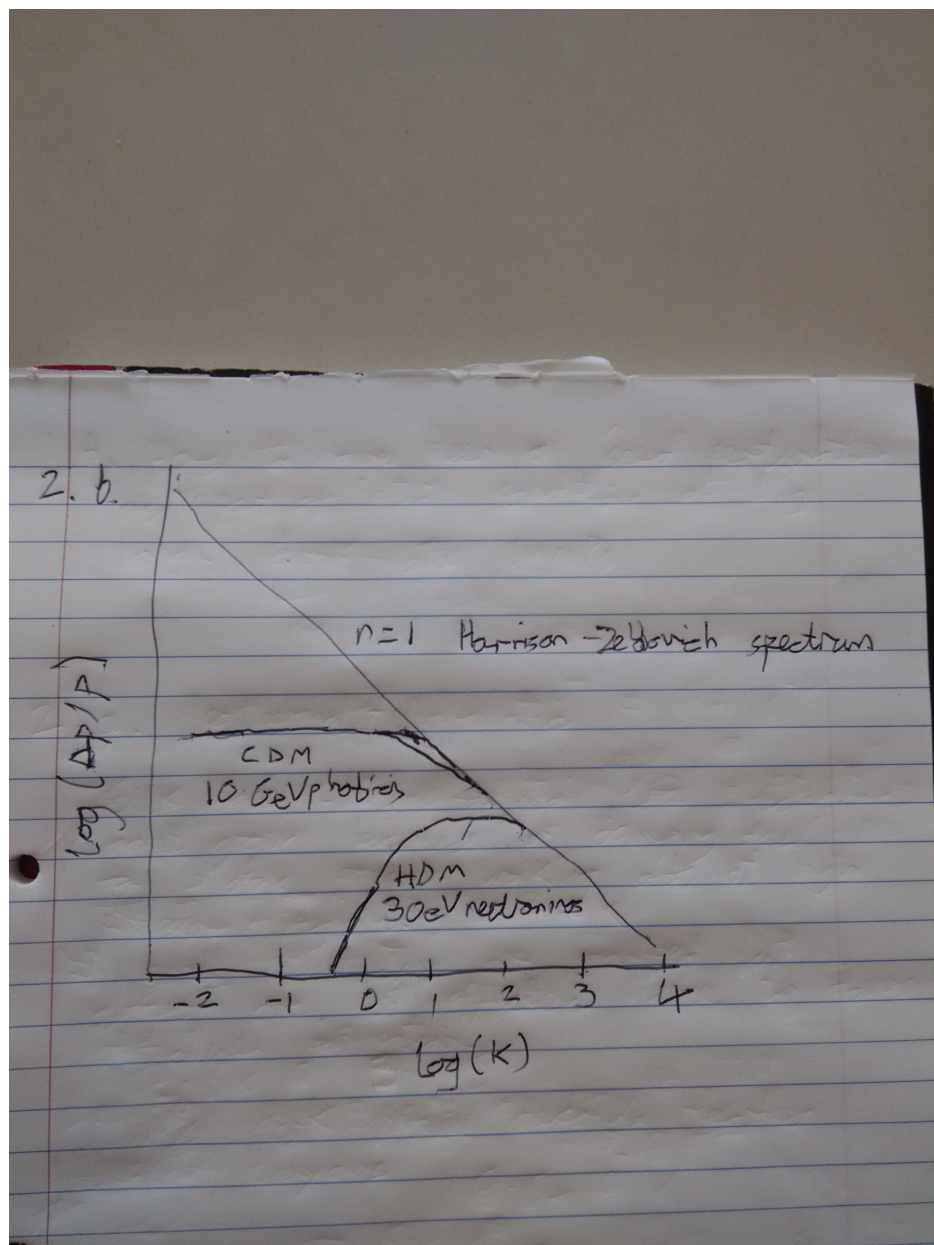 2. b.
n=1 Harrison-Zeldovich spectrum
log (Δρ/ρ)
CDM
10 GeV photinos
HDM
30eV neutrinos
-2 -1 0 1 2 3 4
log (K)